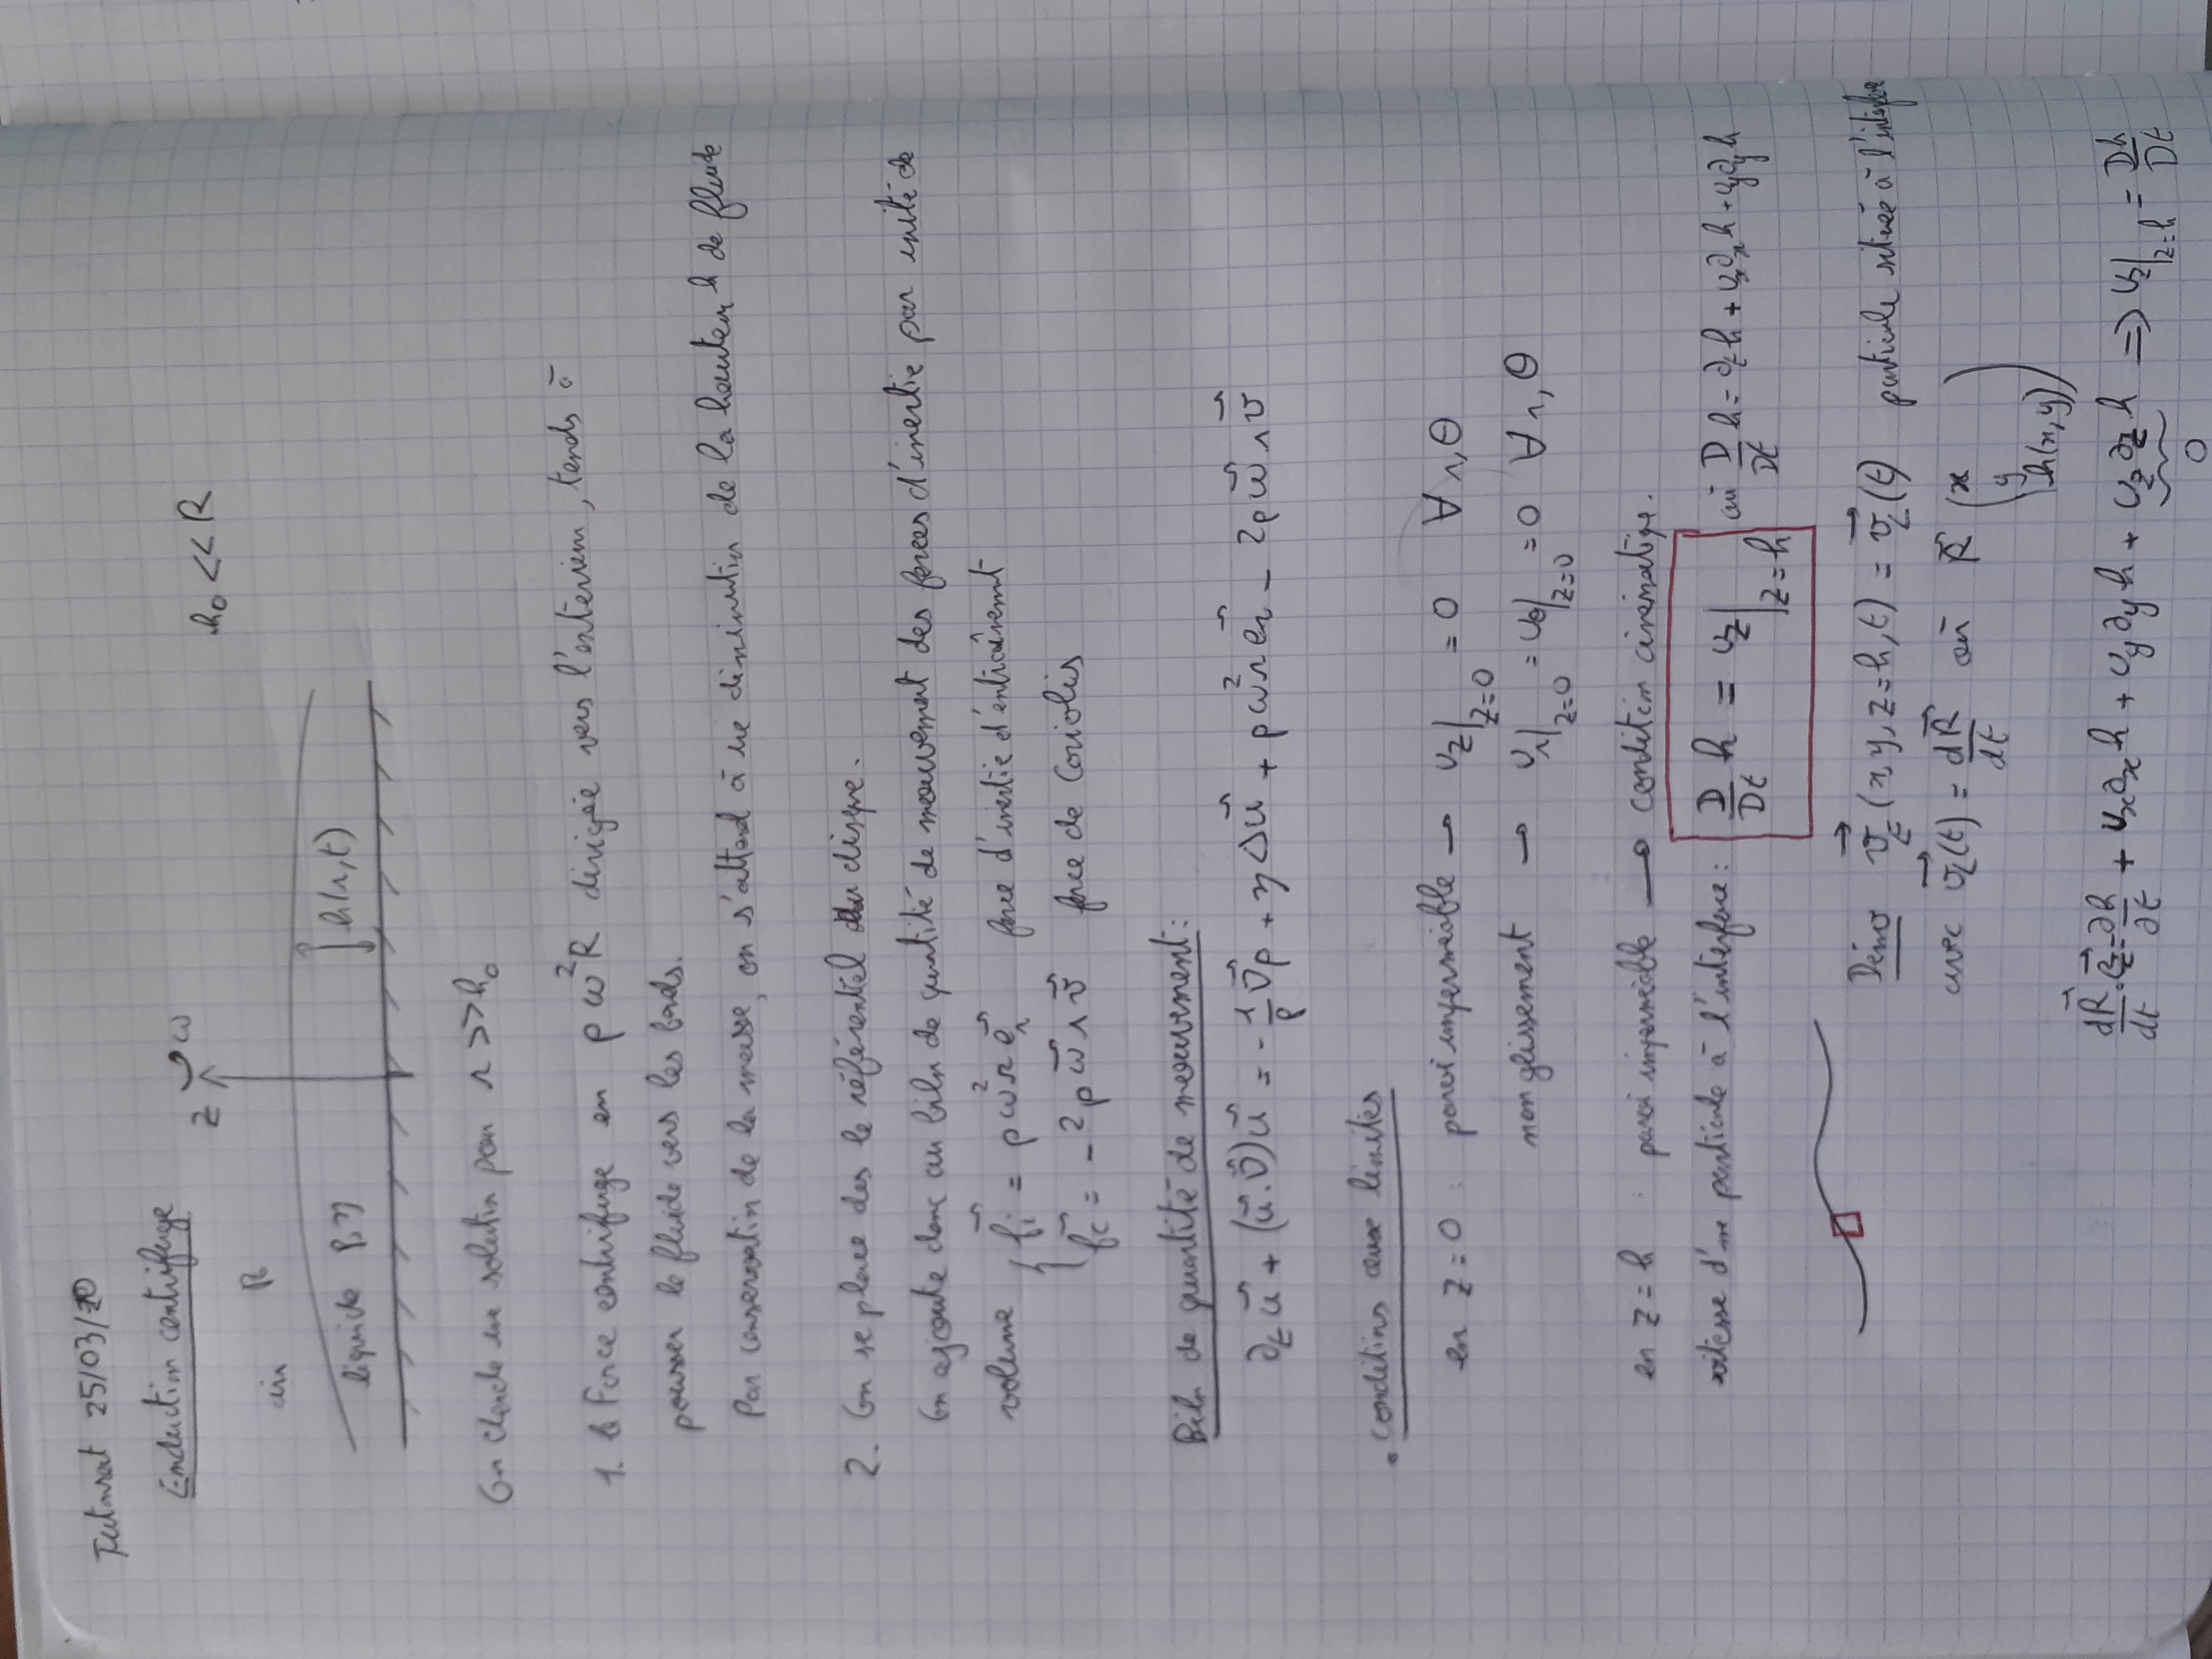 Tutorat 25/03/20
Enduction centrifuge
z ω
h₀ << R
air
liquide ρ, η h(r,t)
On cherche une solution pour r >> h₀
1. Force centrifuge en ρω²R dirigée vers l'exterieur, tends à
pousser le fluide vers les bords.
Par conservation de la masse, on s'attend à une diminution de la hauteur h de fluide
2. On se place ds le référentiel du disque.
On ajoute donc au biln de quantité de mouvement des forces d'inertie par unité de
volume { f⃗ᵢ = ρω²r e⃗ᵣ force d'inertie d'entraînement
f⃗c = -2ρω⃗∧v⃗ force de Coriolis
Biln de quantité de mouvement:
∂ₜu⃗ + (u⃗.∇⃗)u⃗ = -1/ρ ∇⃗p + ηΔu⃗ + ρω²r e⃗ᵣ - 2ρω⃗∧v⃗
. conditions aux limites
en z = 0 : paroi imperméable → v_z|_{z=0} = 0 ∀ r,θ
non glissement → v_r|_{z=0} = v_θ|_{z=0} = 0 ∀ r,θ
en z = h : paroi imperméable → condition cinématique.
vitesse d'une particule à l'interface: D/Dt h = v_z|_{z=h} où D/Dt h = ∂ₜh + vₓ∂ₓh + v_y∂_y h
Démo v⃗_E (x,y,z=h,t) = v⃗_L(t) particule située à l'interface
avec v⃗_L(t) = dR⃗/dt où R⃗ (x
y
h(x,y))
dR⃗/dt . e⃗_z = ∂h/∂t + vₓ∂ₓh + v_y∂_y h + v_z∂_z h ⇒ v_z|_{z=h} = Dh/Dt
0